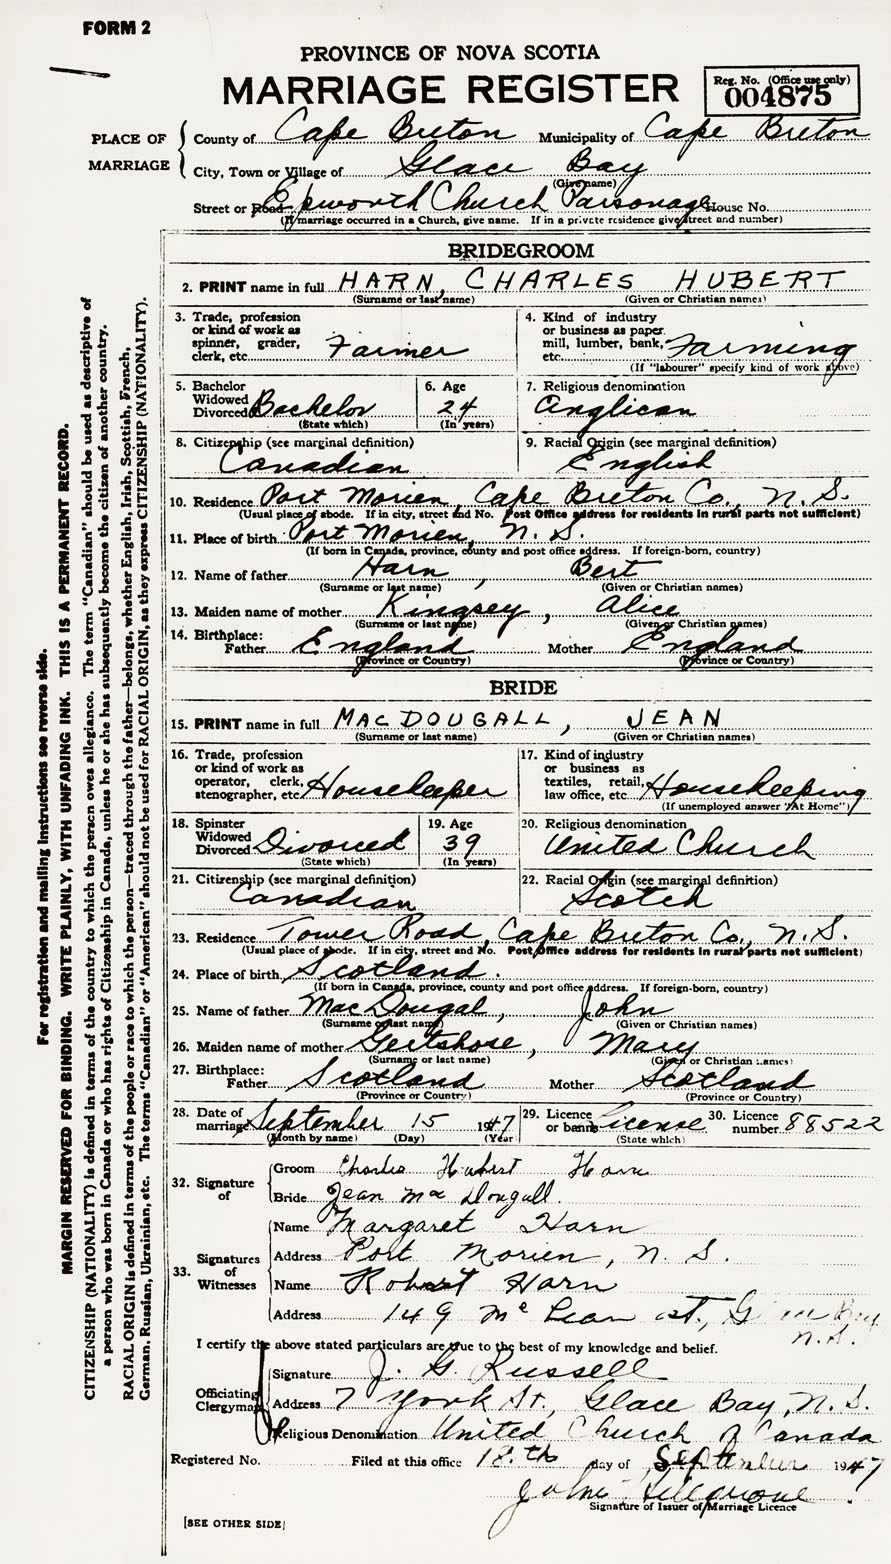 FORM 2
PROVINCE OF NOVA SCOTIA
MARRIAGE REGISTER
Reg. No. (Office use only)
004875
PLACE OF MARRIAGE
County of Cape Breton Municipality of Cape Breton
City, Town or Village of Glace Bay
(Give name)
Street or Road Epworth Church Parsonage House No.
(If marriage occurred in a Church, give name. If in a private residence give street and number)
BRIDEGROOM
2. PRINT name in full HARN, CHARLES HUBERT
(Surname or last name) (Given or Christian names)
3. Trade, profession or kind of work as spinner, grader, clerk, etc. Farmer
4. Kind of industry or business as paper mill, lumber, bank, etc. Farming
(If "labourer" specify kind of work above)
5. Bachelor Widowed Divorced Bachelor
(State which)
6. Age 24
(In years)
7. Religious denomination
Anglican
8. Citizenship (see marginal definition)
Canadian
9. Racial Origin (see marginal definition)
English
10. Residence Port Morien, Cape Breton Co., N. S.
(Usual place of abode. If in city, street and No. Post Office address for residents in rural parts not sufficient)
11. Place of birth Port Morien, N. S.
(If born in Canada, province, county and post office address. If foreign-born, country)
12. Name of father Harn, Bert
(Surname or last name) (Given or Christian names)
13. Maiden name of mother Kingsey, Alice
(Surname or last name) (Given or Christian names)
14. Birthplace: Father England Mother England
(Province or Country) (Province or Country)
BRIDE
15. PRINT name in full MACDOUGALL, JEAN
(Surname or last name) (Given or Christian names)
16. Trade, profession or kind of work as operator, clerk, stenographer, etc. Housekeeper
17. Kind of industry or business as textiles, retail, law office, etc. Housekeeping
(If unemployed answer "At Home")
18. Spinster Widowed Divorced Divorced
(State which)
19. Age 39
(In years)
20. Religious denomination
United Church
21. Citizenship (see marginal definition)
Canadian
22. Racial Origin (see marginal definition)
Scotch
23. Residence Tower Road, Cape Breton Co., N. S.
(Usual place of abode. If in city, street and No. Post Office address for residents in rural parts not sufficient)
24. Place of birth Scotland.
(If born in Canada, province, county and post office address. If foreign-born, country)
25. Name of father MacDougal, John
(Surname or last name) (Given or Christian names)
26. Maiden name of mother Mary
(Surname or last name) (Given or Christian names)
27. Birthplace: Father Scotland Mother Scotland
(Province or Country) (Province or Country)
28. Date of marriage September 15 1947
(Month by name) (Day) (Year)
29. Licence or banns License
(State which)
30. Licence number 88522
32. Signature of
Groom Charles Hubert Harn
Bride Jean MacDougall.
33. Signatures of Witnesses
Name Margaret Harn
Address Port Morien, N. S.
Name Robert Harn
Address 149 McLean St., Glace Bay N.S.
I certify the above stated particulars are true to the best of my knowledge and belief.
Officiating Clergyman
Signature J. G. Russell
Address 7 York St., Glace Bay, N. S.
Religious Denomination United Church of Canada
Registered No. Filed at this office 18th day of September 1947
John
Signature of Issuer of Marriage Licence
[SEE OTHER SIDE]
For registration and mailing instructions see reverse side.
MARGIN RESERVED FOR BINDING. WRITE PLAINLY, WITH UNFADING INK. THIS IS A PERMANENT RECORD.
CITIZENSHIP (NATIONALITY) is defined in terms of the country to which the person owes allegiance. The term "Canadian" should be used as descriptive of
a person who was born in Canada or who has rights of Citizenship in Canada, unless he or she has subsequently become the citizen of another country.
RACIAL ORIGIN is defined in terms of the people or race to which the person—traced through the father—belongs, whether English, Irish, Scottish, French,
German, Russian, Ukrainian, etc. The terms "Canadian" or "American" should not be used for RACIAL ORIGIN, as they express CITIZENSHIP (NATIONALITY).